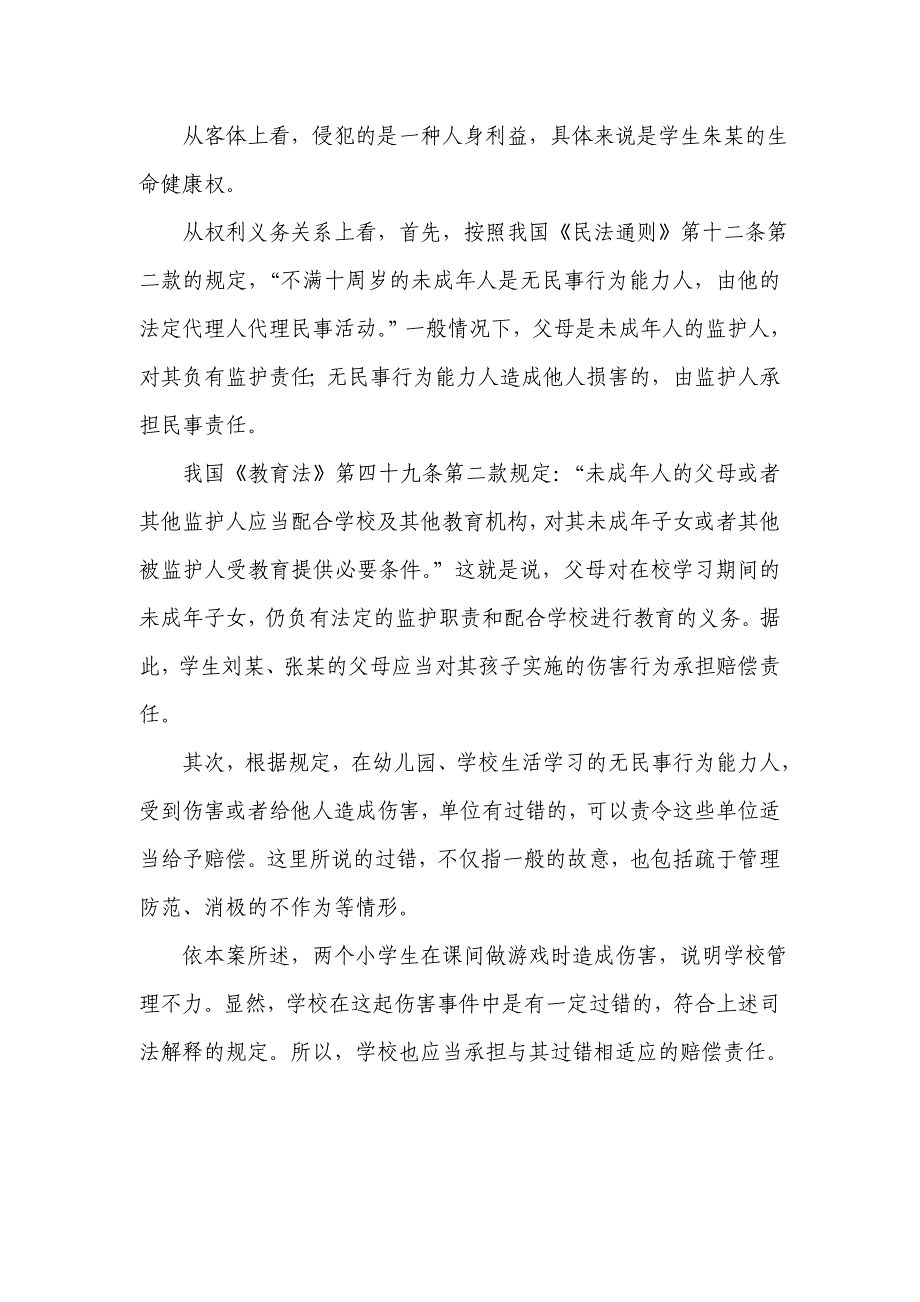 从客体上看，侵犯的是一种人身利益，具体来说是学生朱某的生
命健康权。
从权利义务关系上看，首先，按照我国《民法通则》第十二条第
二款的规定，“不满十周岁的未成年人是无民事行为能力人，由他的
法定代理人代理民事活动。”一般情况下，父母是未成年人的监护人，
对其负有监护责任；无民事行为能力人造成他人损害的，由监护人承
担民事责任。
我国《教育法》第四十九条第二款规定：“未成年人的父母或者
其他监护人应当配合学校及其他教育机构，对其未成年子女或者其他
被监护人受教育提供必要条件。”这就是说，父母对在校学习期间的
未成年子女，仍负有法定的监护职责和配合学校进行教育的义务。据
此，学生刘某、张某的父母应当对其孩子实施的伤害行为承担赔偿责
任。
其次，根据规定，在幼儿园、学校生活学习的无民事行为能力人，
受到伤害或者给他人造成伤害，单位有过错的，可以责令这些单位适
当给予赔偿。这里所说的过错，不仅指一般的故意，也包括疏于管理
防范、消极的不作为等情形。
依本案所述，两个小学生在课间做游戏时造成伤害，说明学校管
理不力。显然，学校在这起伤害事件中是有一定过错的，符合上述司
法解释的规定。所以，学校也应当承担与其过错相适应的赔偿责任。